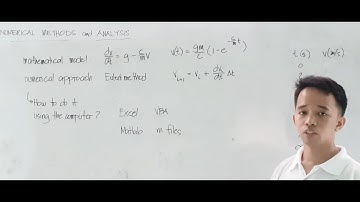 NUMERICAL METHODS and ANALYSIS
mathematical model dv/dt = g - c/m v v(t) = gm/c (1 - e^(-c/m t)) t(s) v(m/s)
0
numerical approach Euler method v_i+1 = v_i + dv_i/dt Δt
How to do it Excel VBA
using the computer? Matlab m files